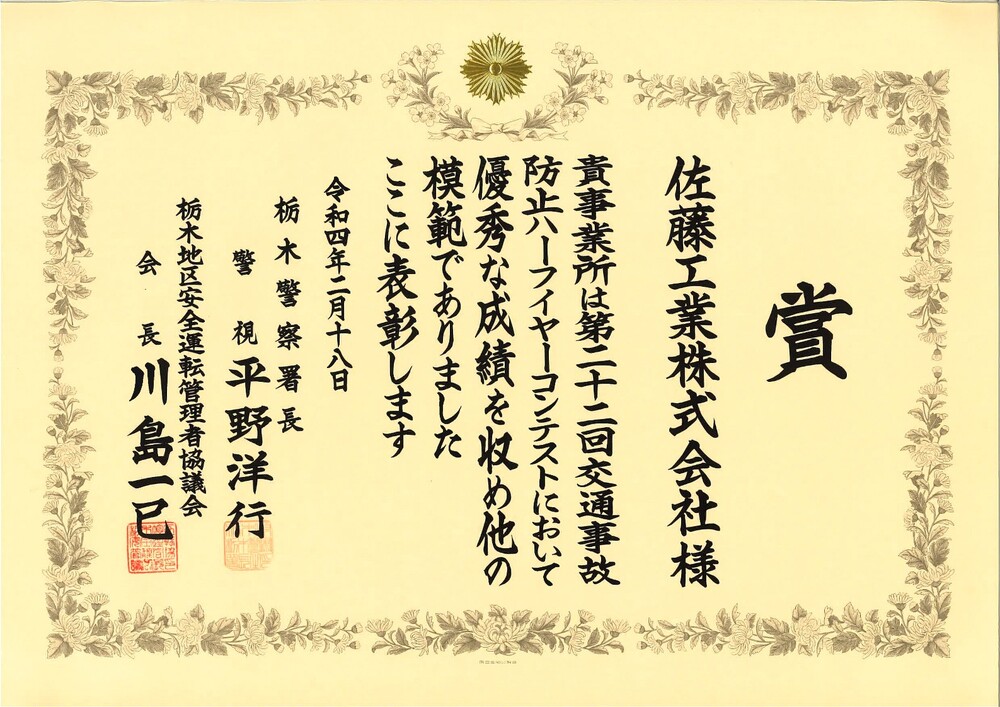 賞
佐藤工業株式会社様
貴事業所は第二十二回交通事故
防止ハーフイヤーコンテストにおいて
優秀な成績を収め他の
模範でありました
ここに表彰します
令和四年二月十八日
栃木警察署長
警視 平野洋行
栃木地区安全運転管理者協議会
会長 川島一已